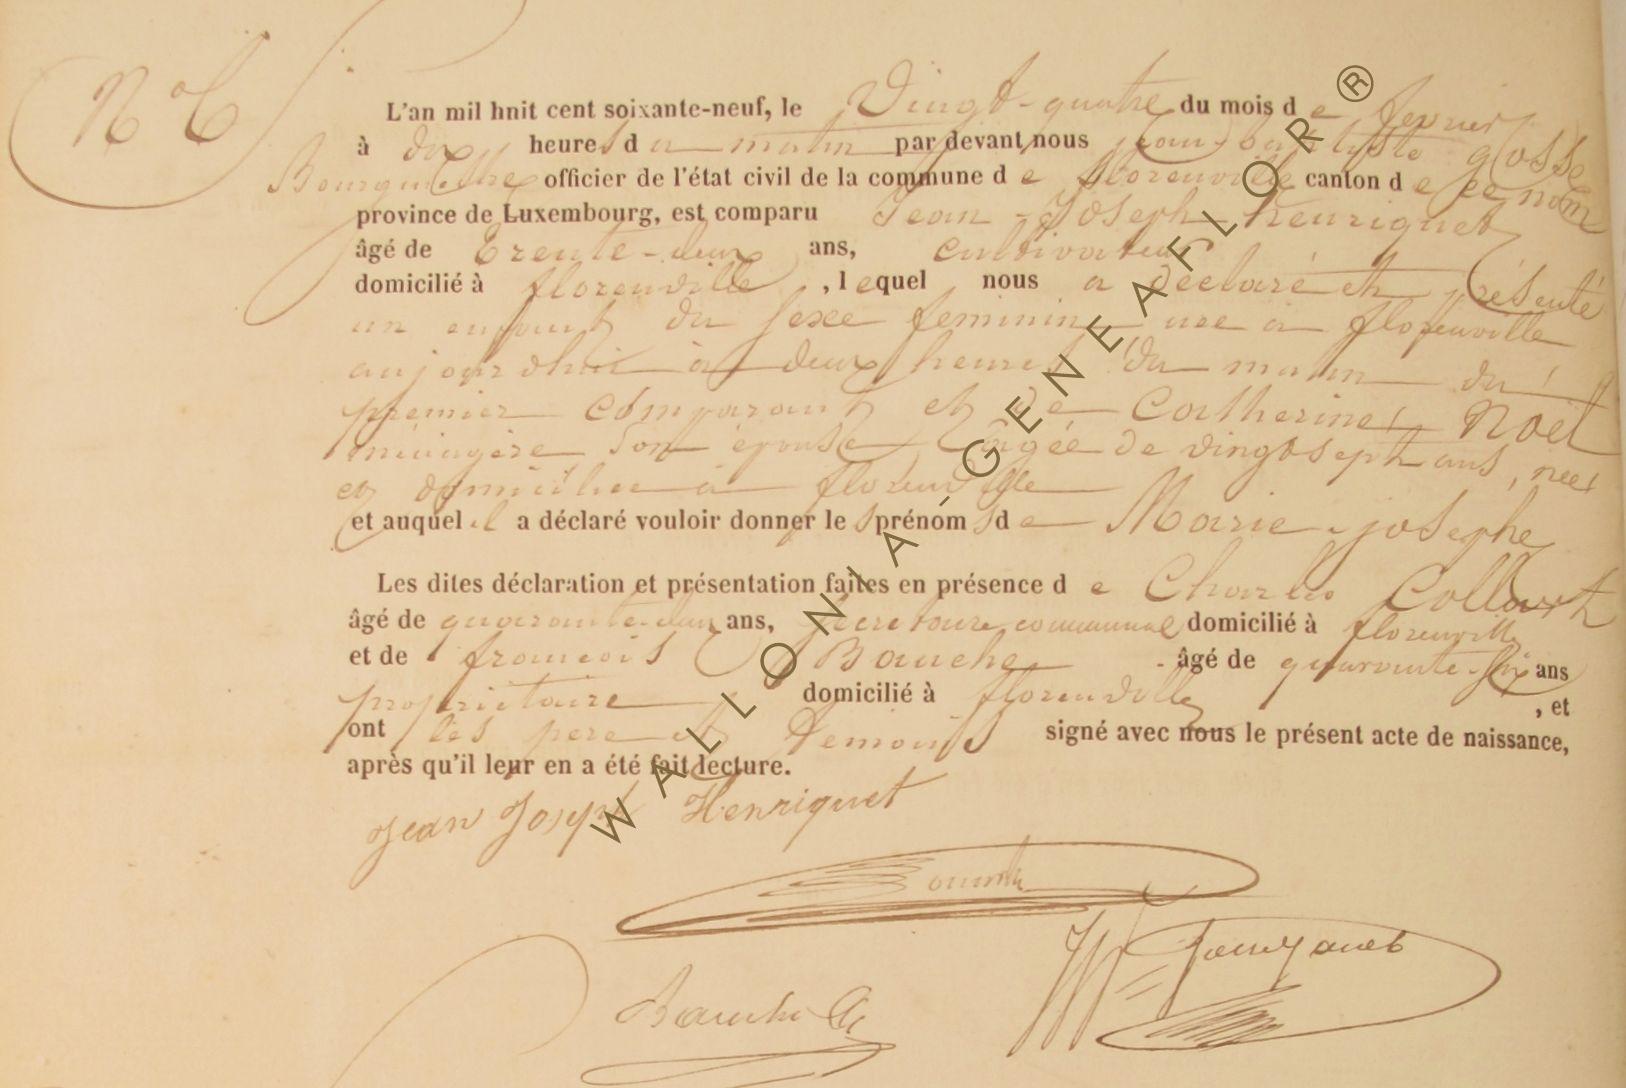 N° 6
L'an mil hnit cent soixante-neuf, le Vingt-quatre du mois de fevrier
à dix heures du matin par devant nous jean-baptiste gosse
Bourgmestre officier de l'état civil de la commune de florenville canton de ce nom
province de Luxembourg, est comparu Jean-Joseph henriquet
âgé de trente-deux ans, cultivateur
domicilié à florenville, lequel nous a déclaré et présenté
un enfant du sexe feminin née a florenville
aujourdhui à deux heures du matin du
premier comparant et de Catherine Noël
ménagère son épouse agée de vingt sept ans, née
et domiciliée a florenville
et auquel il a déclaré vouloir donner les prénoms de Marie-josephe
Les dites déclaration et présentation faites en présence de Charles Collart
âgé de quarante-deux ans, secretaire communal domicilié à florenville
et de francois Bauche âgé de quarante-six ans
propriétaire domicilié à florenville, et
ont les pere et temoins signé avec nous le présent acte de naissance,
après qu'il leur en a été fait lecture.
Jean Joseph Henriquet
Bauche
WALLONIA-GENEAFLOR®